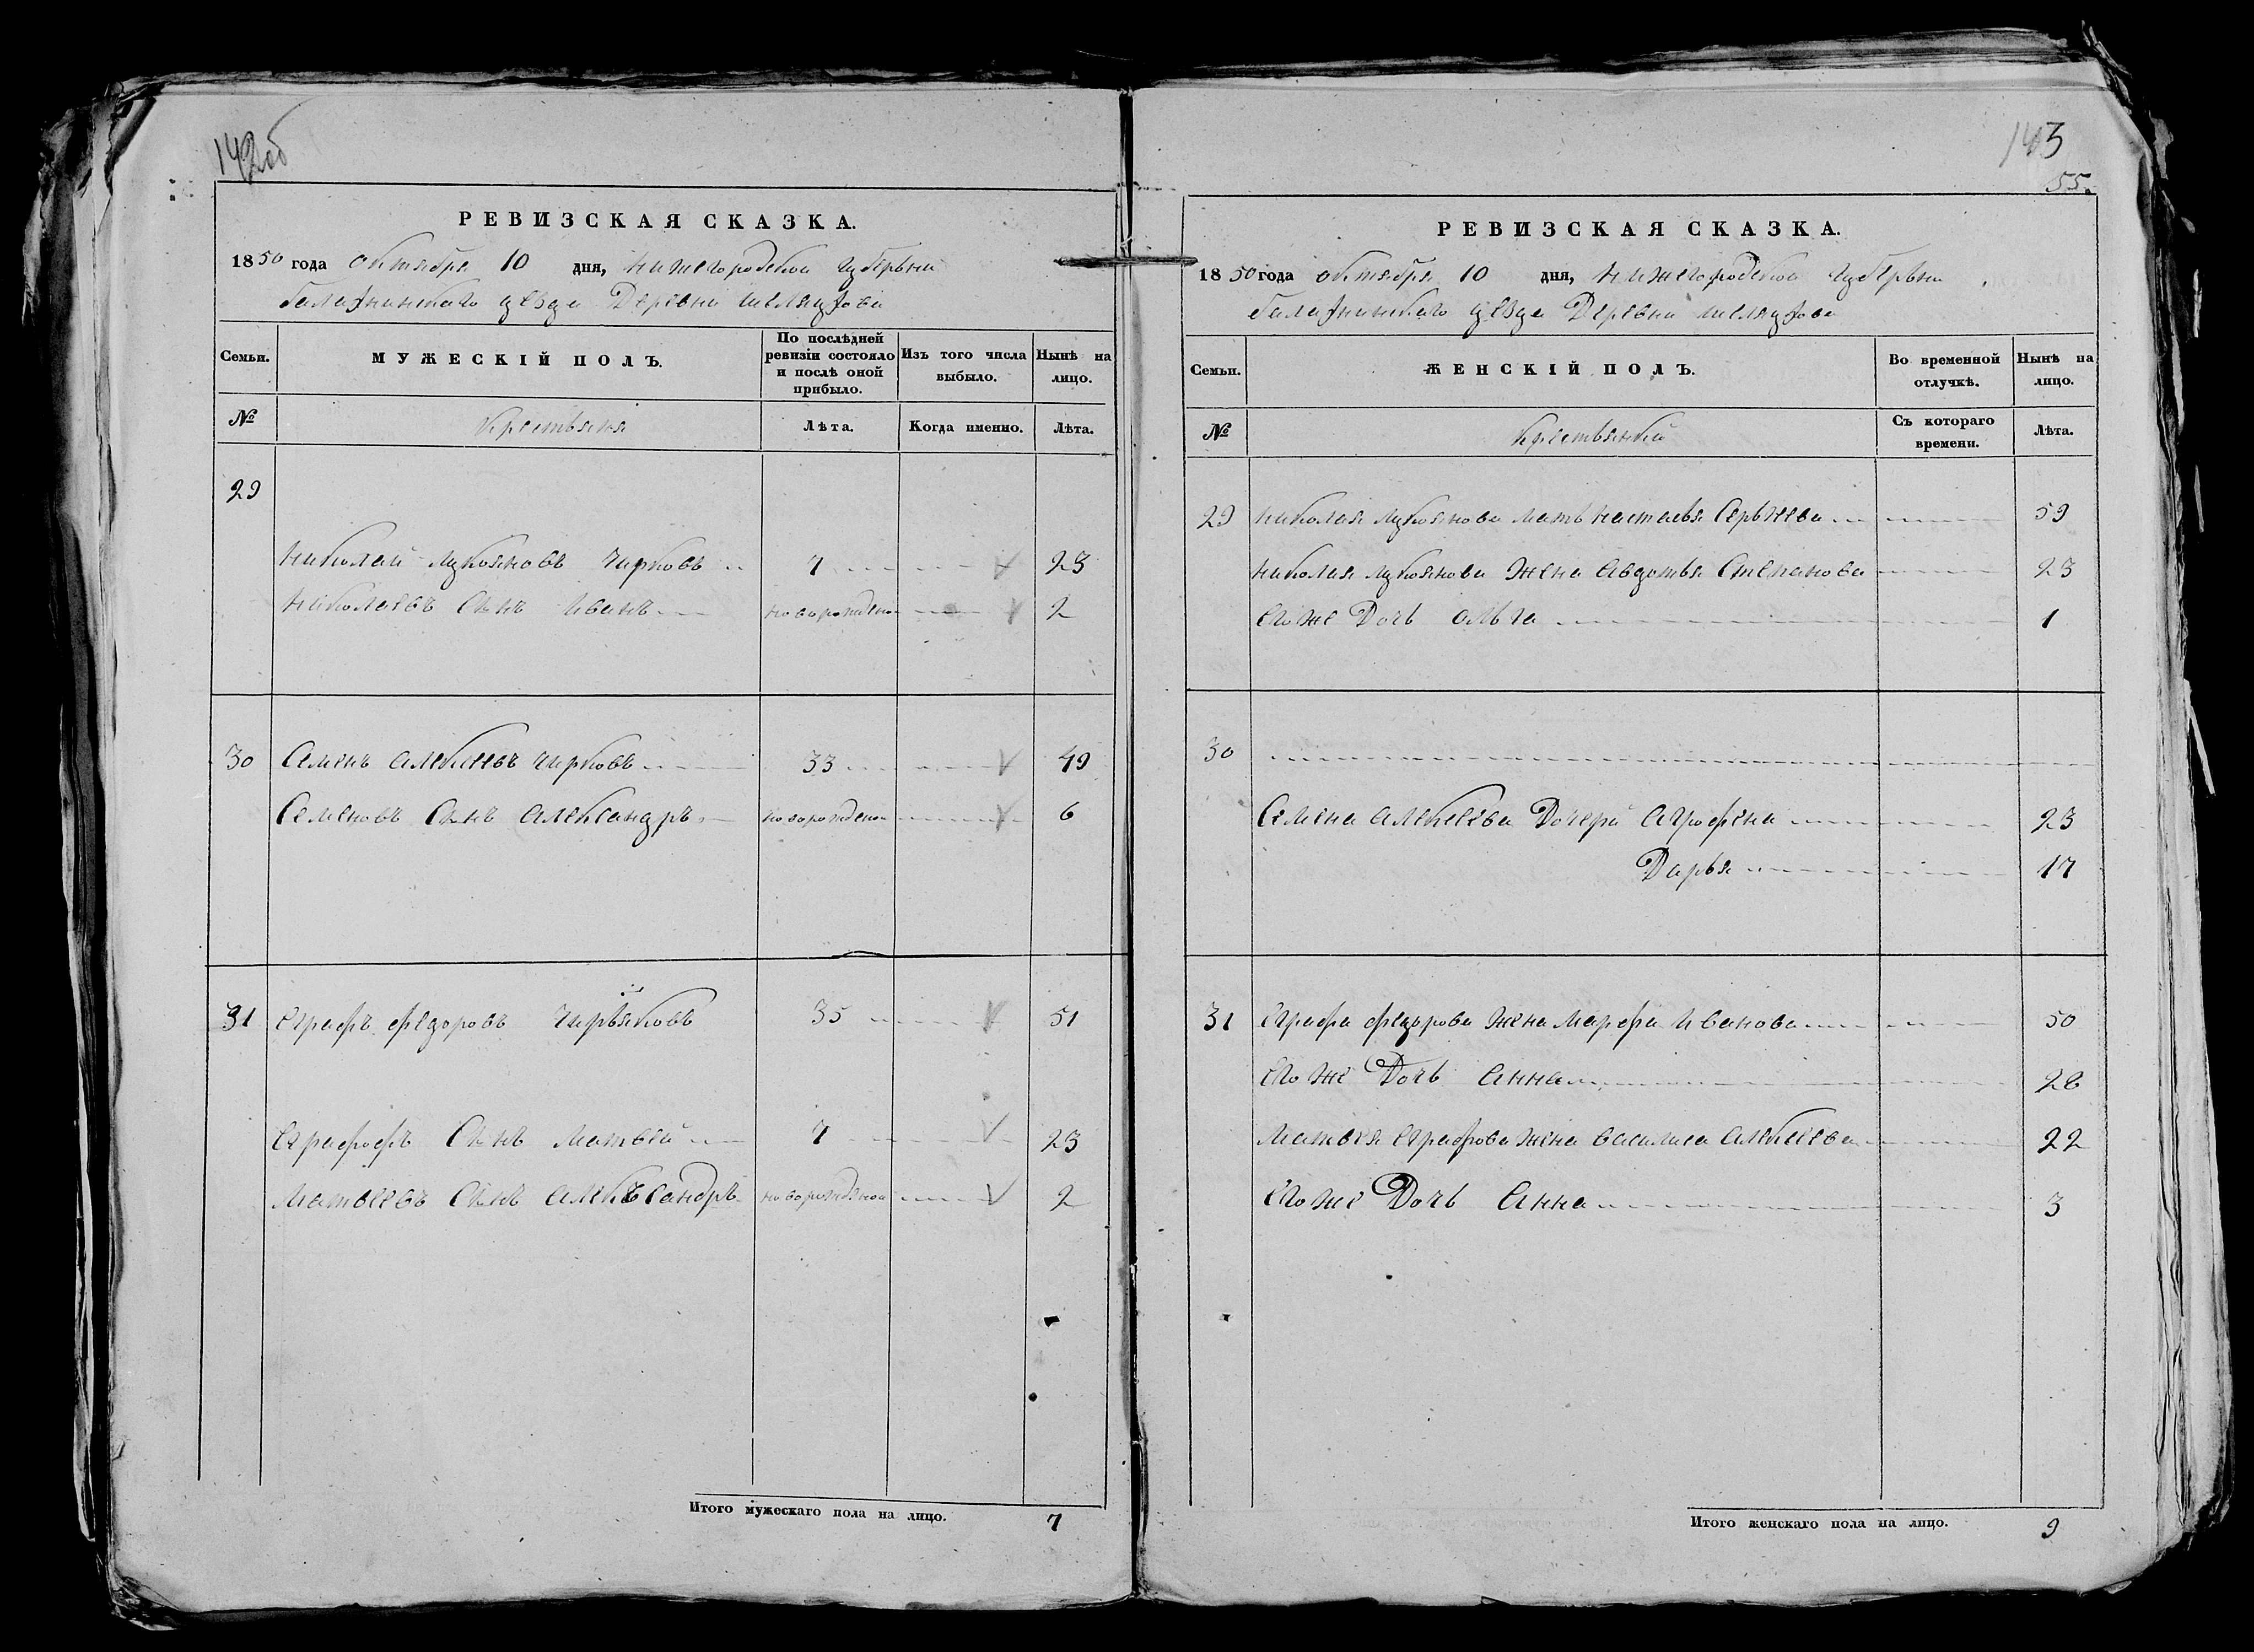 142об
РЕВИЗСКАЯ СКАЗКА.
1850 года октября 10 дня, нижегородской губерьни
балахнинскаго уезда Деревни
Семьи.
МУЖЕСКІЙ ПОЛЪ.
По послѣдней ревизіи состояло и послѣ оной прибыло.
Изъ того числа выбыло.
Нынѣ на лицо.
№
Крестьяня
Лѣта.
Когда именно.
Лѣта.
29
николай лукояновъ чирковъ 7 23
николаевъ Сынъ иванъ новорожденой 2
30 Семенъ алексеевъ чирковъ 33 49
Семеновъ Сынъ александръ новорожденой 6
31 Еграфъ федоровъ 35 51
Еграфофъ Сынъ матвей 7 23
матвеевъ Сынъ алекъсандръ новорожденой 2
Итого мужескаго пола на лицо. 7
143
55.
РЕВИЗСКАЯ СКАЗКА.
1850 года октября 10 дня, нижегородской губерьни
балахнинскаго уезда Деревни
Семьи.
ЖЕНСКІЙ ПОЛЪ.
Во временной отлучкѣ.
Нынѣ на лицо.
№
Крестьянки
Съ котораго времени.
Лѣта.
29 николая лукоянова мать настасья Серьнева 59
николая лукоянова жена авдотья Степанова 23
Егоже Дочь ольга 1
30
Семена алексеева Дочери аграфена 23
Дарья 17
31 Еграфа федорова жена марфа иванова 50
Егоже Дочь анна 28
матвея Еграфова жена василиса алексеева 22
Егоже Дочь Анна 3
Итого женскаго пола на лицо. 9